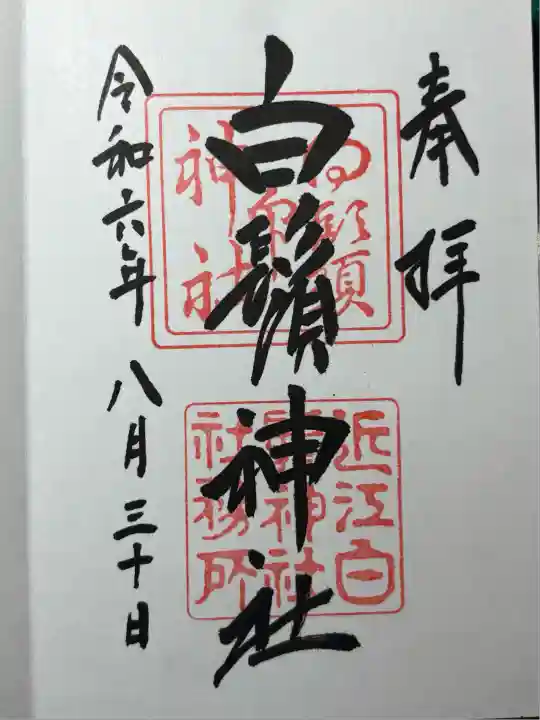 奉拝
白鬚神社
近江白
鬚神社
社務所
令和六年 八月三十日